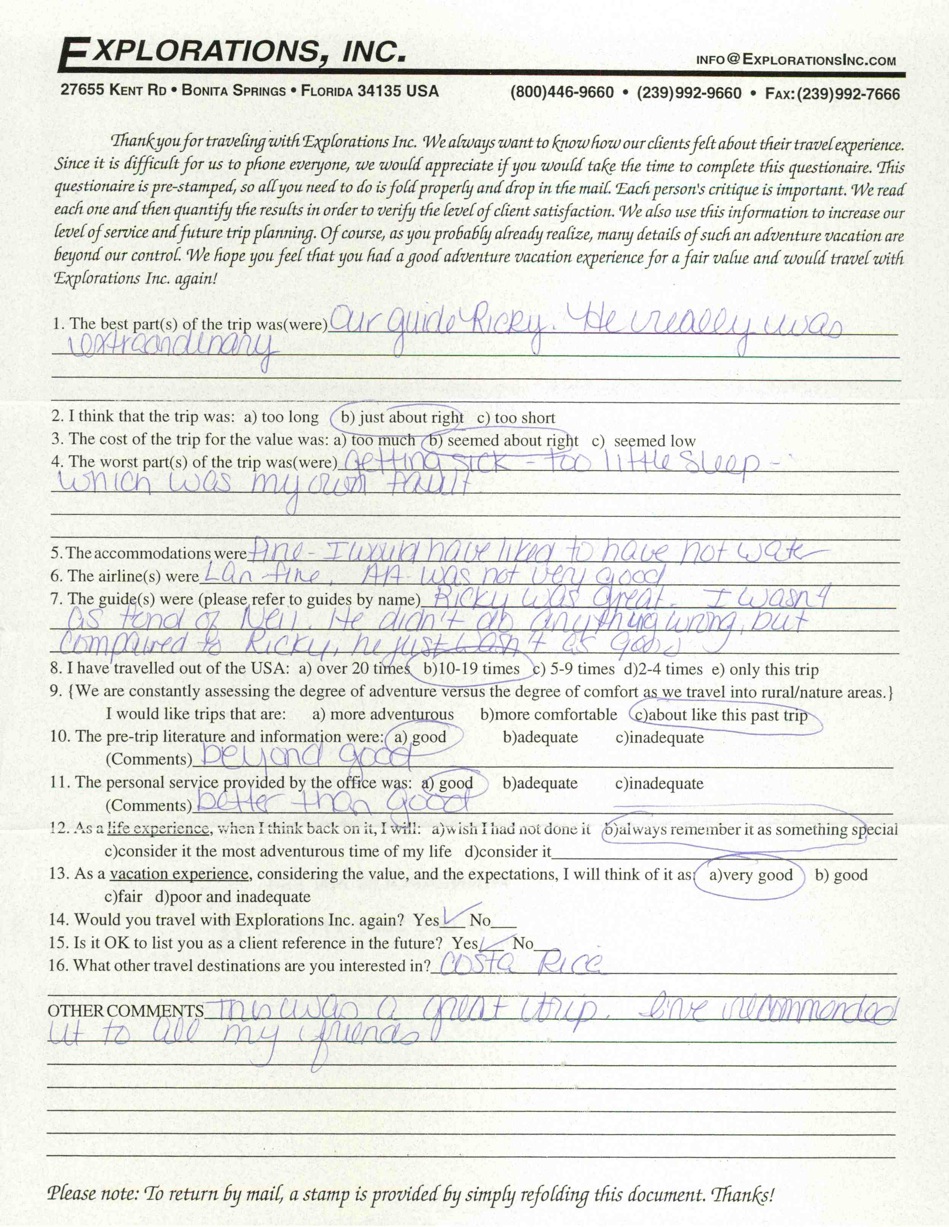 EXPLORATIONS, INC.
INFO@EXPLORATIONSINC.COM
27655 KENT RD • BONITA SPRINGS • FLORIDA 34135 USA (800)446-9660 • (239)992-9660 • FAX:(239)992-7666
Thank you for traveling with Explorations Inc. We always want to know how our clients felt about their travel experience.
Since it is difficult for us to phone everyone, we would appreciate if you would take the time to complete this questionaire. This
questionaire is pre-stamped, so all you need to do is fold properly and drop in the mail. Each person's critique is important. We read
each one and then quantify the results in order to verify the level of client satisfaction. We also use this information to increase our
level of service and future trip planning. Of course, as you probably already realize, many details of such an adventure vacation are
beyond our control. We hope you feel that you had a good adventure vacation experience for a fair value and would travel with
Explorations Inc. again!
1. The best part(s) of the trip was(were) Our guide Ricky. He really was
extraordinary
2. I think that the trip was: a) too long b) just about right c) too short
3. The cost of the trip for the value was: a) too much b) seemed about right c) seemed low
4. The worst part(s) of the trip was(were) Getting sick - too little sleep -
which was my own fault
5. The accommodations were fine - I would have liked to have hot water
6. The airline(s) were Lan fine. AA was not very good
7. The guide(s) were (please refer to guides by name) Ricky was great. I wasn't
as fond of Neil. He didn't do anything wrong, but
compared to Ricky, he just wasn't as good
8. I have travelled out of the USA: a) over 20 times b)10-19 times c) 5-9 times d)2-4 times e) only this trip
9. {We are constantly assessing the degree of adventure versus the degree of comfort as we travel into rural/nature areas.}
I would like trips that are: a) more adventurous b)more comfortable c)about like this past trip
10. The pre-trip literature and information were: a) good b)adequate c)inadequate
(Comments) beyond good
11. The personal service provided by the office was: a) good b)adequate c)inadequate
(Comments) better than good
12. As a life experience, when I think back on it, I will: a)wish I had not done it b)always remember it as something special
c)consider it the most adventurous time of my life d)consider it
13. As a vacation experience, considering the value, and the expectations, I will think of it as: a)very good b) good
c)fair d)poor and inadequate
14. Would you travel with Explorations Inc. again? Yes ✓ No
15. Is it OK to list you as a client reference in the future? Yes ✓ No
16. What other travel destinations are you interested in? Costa Rica
OTHER COMMENTS This was a great trip. I've recommended
it to all my friends
Please note: To return by mail, a stamp is provided by simply refolding this document. Thanks!